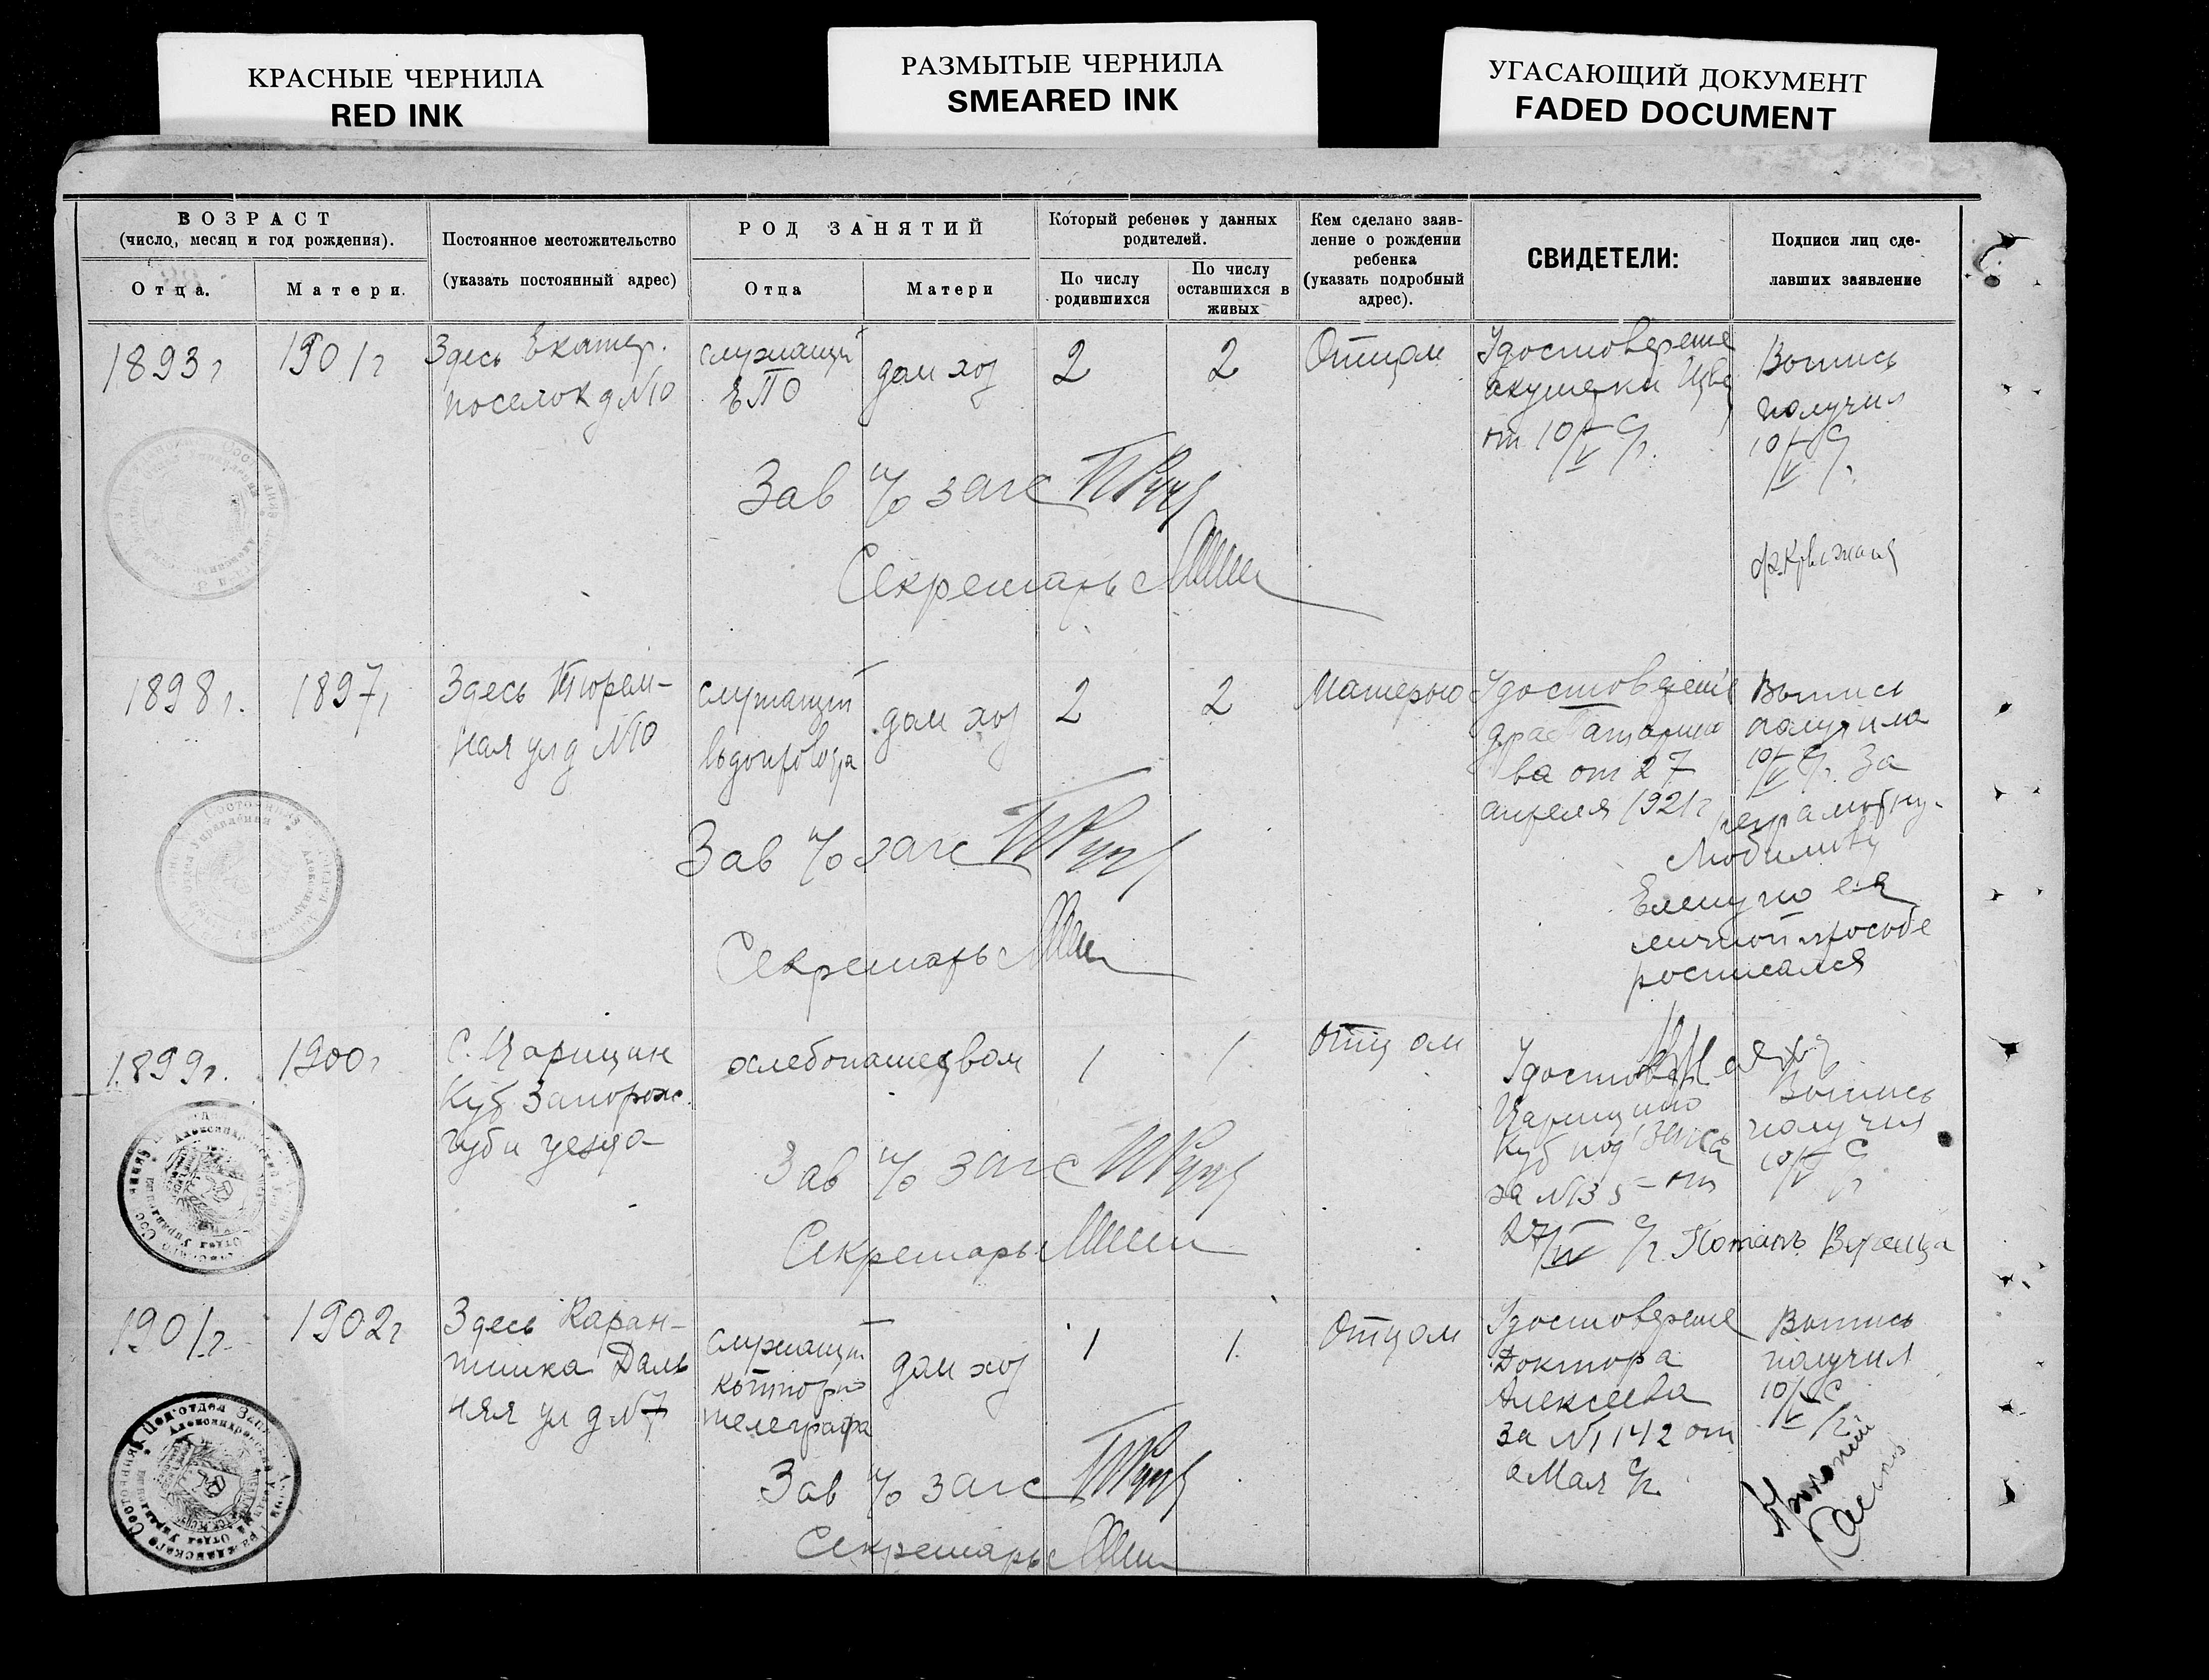 КРАСНЫЕ ЧЕРНИЛА
RED INK
РАЗМЫТЫЕ ЧЕРНИЛА
SMEARED INK
УГАСАЮЩИЙ ДОКУМЕНТ
FADED DOCUMENT
ВОЗРАСТ
(число, месяц и год рождения).
Отца.
Матери.
Постоянное местожительство
(указать постоянный адрес)
РОД ЗАНЯТИЙ
Отца
Матери
Который ребенок у данных
родителей.
По числу
родившихся
По числу
оставшихся в
живых
Кем сделано заяв-
ление о рождении
ребенка
(указать подробный
адрес).
СВИДЕТЕЛИ:
Подписи лиц сде-
лавших заявление
1893 г
1901 г
Здесь Екатер.
поселок д №10
служащий
ЕПО
дом хоз
2
2
Отцом
Удостоверение
акушерки
от 10/V с/г.
Выпись
получил
10/V с/г.
Зав п/о загс
Секретарь
1898 г.
1897 г
Здесь Тюрем-
ная ул д №10
служащий
дом хоз
2
2
Матерью
Удостоверение
д-ра
ва от 27
апреля 1921 г
Выпись
получила
10/V с/г. За
неграмотну-
Елену по ея
личной просьбе
росписался
Зав п/о загс
Секретарь
1899 г.
1900 г
С. Царицын
Куб Запорож.
губ и уезда
хлебопашеством
1
1
Отцом
Удостовер
Царицыно
Куб под Загса
за №35 от
27/IV с/г.
Выпись
получил
10/V с/г
Потапъ
Зав п/о загс
Секретарь
1901 г.
1902 г
Здесь Каран-
тинка Даль
няя ул д №7
служащий
конторы
телеграфа
дом хоз
1
1.
Отцом
Удостоверение
Доктора
Алексеева
за №142 от
Мая с/г.
Выпись
получил
10/V с/г
Зав п/о загс
Секретарь